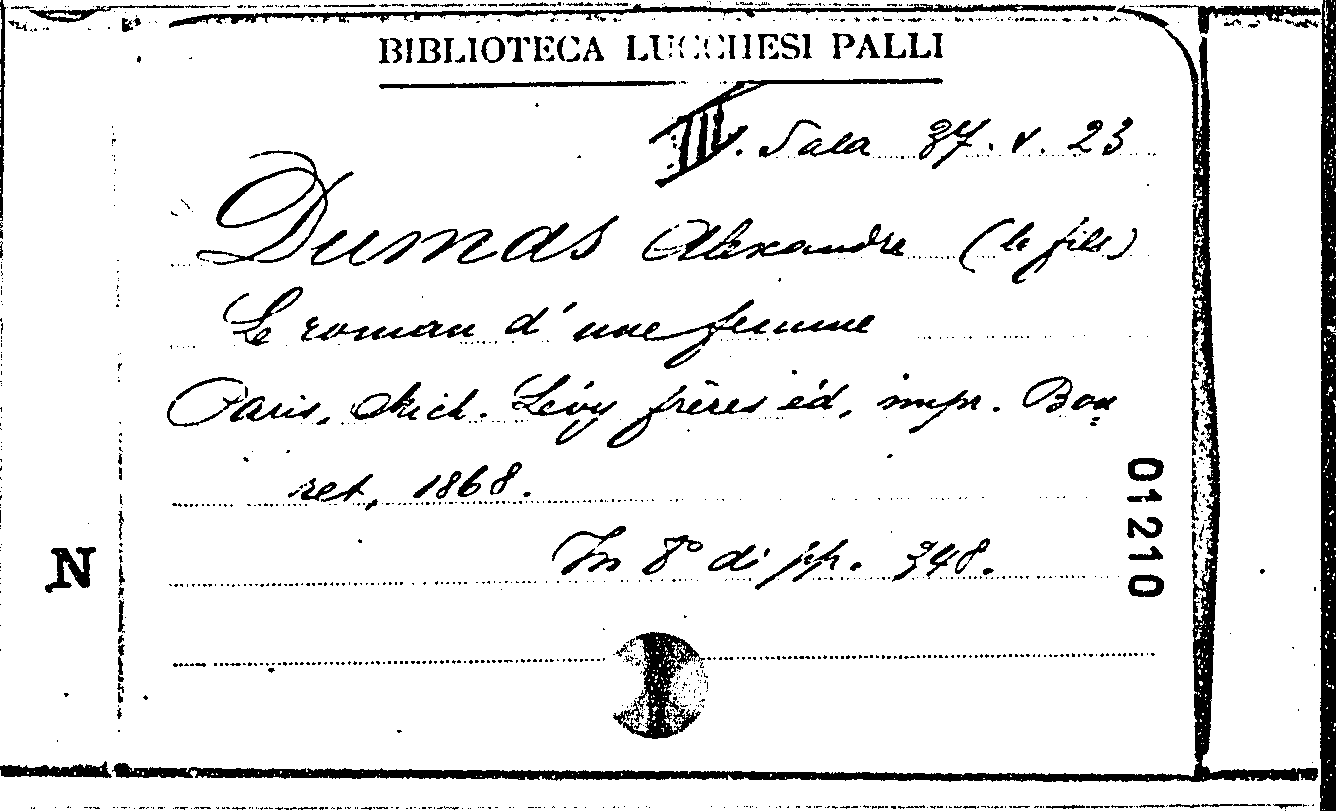 BIBLIOTECA LUCCHESI PALLI
III. Sala 37. V. 23
Dumas Alexandre (le fils)
Le roman d'une femme
Paris, Mich. Lévy frères éd, impr. Bou
ret, 1868.
In 8º di pp. 348.
N
01210